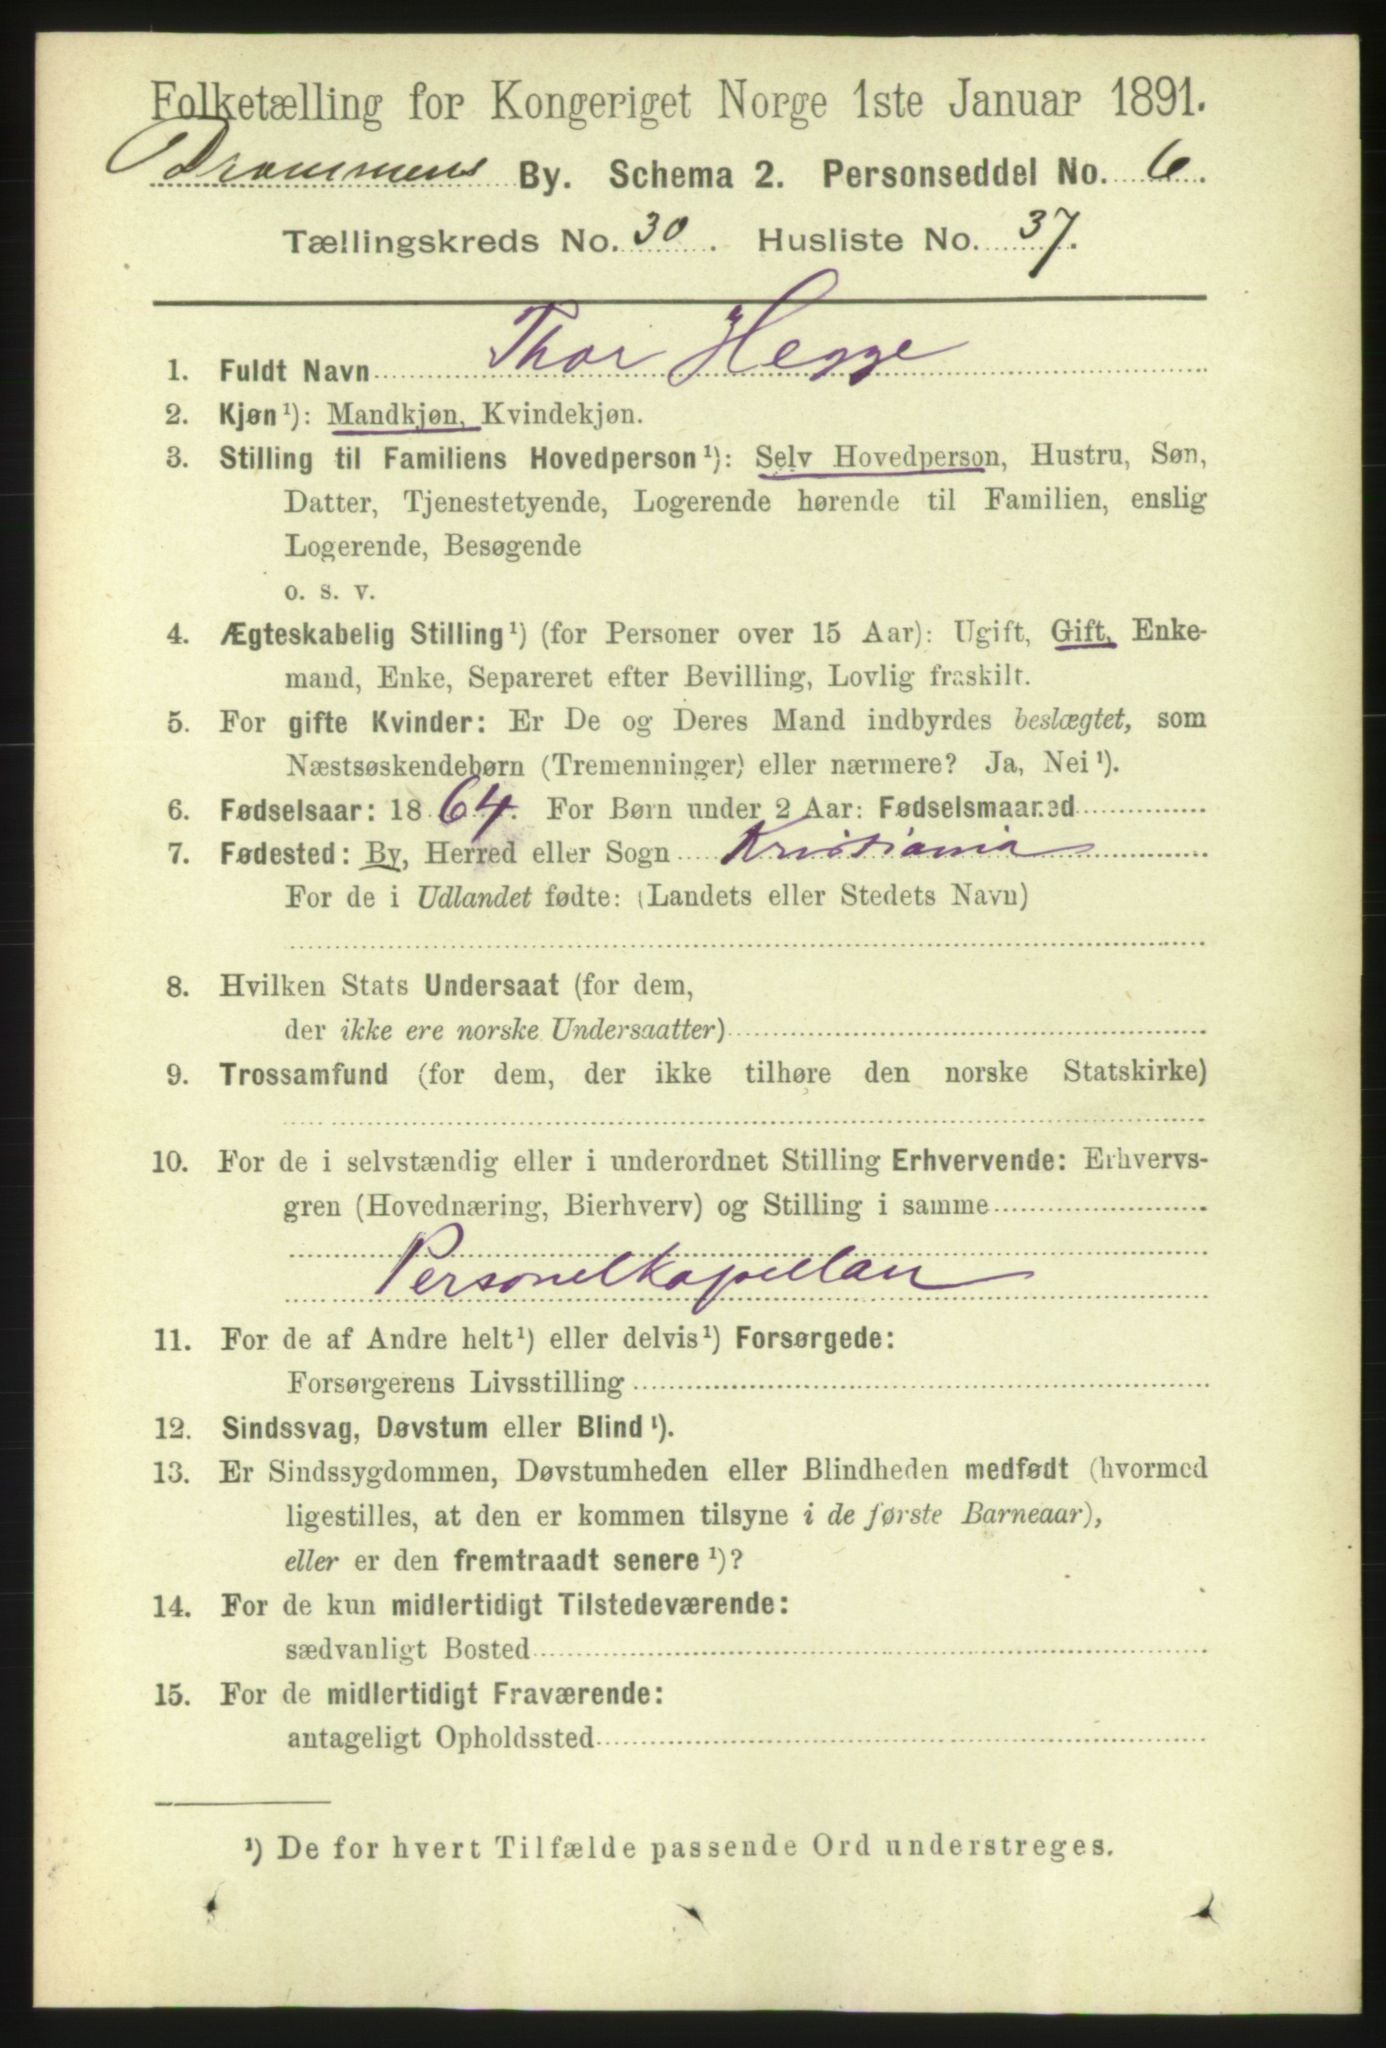 Folketælling for Kongeriget Norge 1ste Januar 1891.
Drammens By. Schema 2. Personseddel No. 6.
Tællingskreds No. 30. Husliste No. 37.
1. Fuldt Navn Thor Hegge
2. Kjøn¹): Mandkjøn, Kvindekjøn.
3. Stilling til Familiens Hovedperson¹): Selv Hovedperson, Hustru, Søn,
Datter, Tjenestetyende, Logerende hørende til Familien, enslig
Logerende, Besøgende
o. s. v.
4. Ægteskabelig Stilling¹) (for Personer over 15 Aar): Ugift, Gift, Enke-
mand, Enke, Separeret efter Bevilling, Lovlig fraskilt.
5. For gifte Kvinder: Er De og Deres Mand indbyrdes beslægtet, som
Næstsøskendebørn (Tremenninger) eller nærmere? Ja, Nei¹).
6. Fødselsaar: 1864. For Børn under 2 Aar: Fødselsmaaned
7. Fødested: By, Herred eller Sogn Kristiania
For de i Udlandet fødte: (Landets eller Stedets Navn)
8. Hvilken Stats Undersaat (for dem,
der ikke ere norske Undersaatter)
9. Trossamfund (for dem, der ikke tilhøre den norske Statskirke)
10. For de i selvstændig eller i underordnet Stilling Erhvervende: Erhvervs-
gren (Hovednæring, Bierhverv) og Stilling i samme
Personelkapellan
11. For de af Andre helt¹) eller delvis¹) Forsørgede:
Forsørgerens Livsstilling
12. Sindssvag, Døvstum eller Blind¹).
13. Er Sindssygdommen, Døvstumheden eller Blindheden medfødt (hvormed
ligestilles, at den er kommen tilsyne i de første Barneaar),
eller er den fremtraadt senere¹)?
14. For de kun midlertidigt Tilstedeværende:
sædvanligt Bosted
15. For de midlertidigt Fraværende:
antageligt Opholdssted
¹) De for hvert Tilfælde passende Ord understreges.